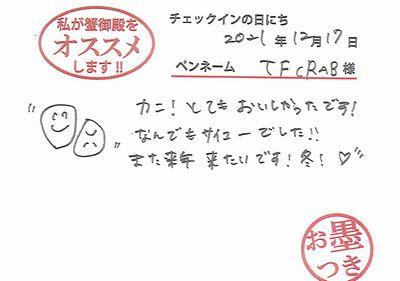 私が蟹御殿を
オススメ
します!!
チェックインの日にち
2021年12月17日
ペンネーム TFCRAB様
カニ!とてもおいしかったです!
なんでもサイコーでした!!
また来年 来たいです!冬!♡
お墨
つき